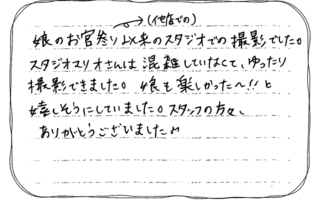 (他店での)
娘のお宮参り以来のスタジオでの撮影でした。
スタジオマリオさんは混雑していなくて、ゆったり
撮影できました。 娘も楽しかった〜!!と
嬉しそうにしていました。スタッフの方々、
ありがとうございました♪